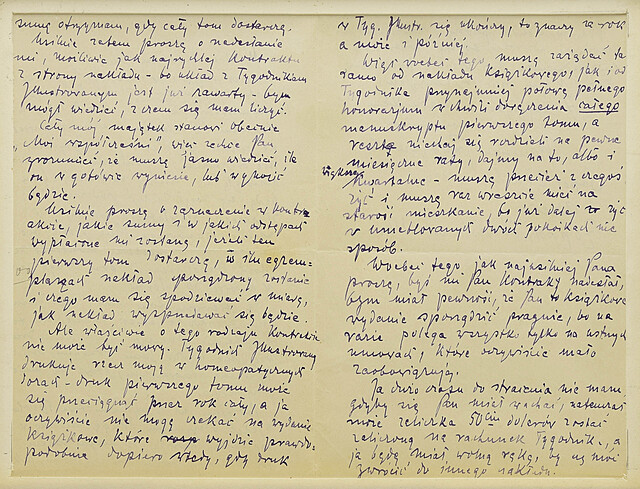 sumę otrzymam, gdy cały tom dostarczę.
Usilnie zatem proszę o nadesłanie
mi, możliwie jak najrychlej Kontraktu
z strony nakładu - bo układ z Tygodnikiem
Illustrowanym jest już zawarty - bym
mógł wiedzieć, z czem się mam liczyć.
Cały mój majątek stanowi obecnie
"Moi współcześni", więc zechce Pan
zrozumieć, że muszę jasno wiedzieć, ile
on w gotówce wyniesie, lub wynosić
będzie.
Usilnie proszę o zaznaczenie w Kontra-
akcie, jakie sumy i w jakich odstępach
wypłacone mi zostaną, jeżeli ten
pierwszy tom dostarczę, w ilu egzem-
plarzach nakład sporządzony zostanie
i czego mam się spodziewać w miarę,
jak nakład wyprzedawać się będzie.
Ale właściwie o tego rodzaju Kontrakcie
nie może być mowy. Tygodnik Illustrowany
drukuje rzecz moją w homeopatycznych
dozach - druk pierwszego tomu może
się przeciągnąć przez rok cały, a ja
oczywiście nie mogę czekać na wydanie
Książkowe, które wyjdzie prawdo-
podobnie dopiero wtedy, gdy druk
w Tyg. Illustr. się ukończy, to znaczy za rok
a może i później.
Więc wobec tego, muszę zażądać ta
samo od nakładu Książkowego, jak i od
Tygodnika przynajmniej połowę pełnego
honorarjum w chwili doręczenia całego
manuskryptu pierwszego tomu, a
reszta niechaj się rozdzieli na pewne
miesięczne raty, dajmy na to, albo i
Kwartalne - muszę przecież z czegoś
żyć i muszę raz wreszcie mieć na
starość mieszkanie, bo już dalej żyć
w umeblowanych dwóch pokoikach nie
sposób.
Wobec tego, jak najusilniej Pana
proszę, byś mi Pan Kontrakt nadesłał,
bym miał pewność, że Pan to książkowe
wydanie sporządzić pragnie, bo na
razie polega wszystko tylko na ustnych
umowach, które oczywiście mało
zaobowiązują.
Ja dużo czasu do stracenia nie mam
gdyby się Pan miał wahać, natenczas
moje zaliczka 50 dolarów zostać
zaliczoną na rachunek Tygodnik., a
ja będę miał wolną rękę, by się móc
zwrócić do innego nakładu.